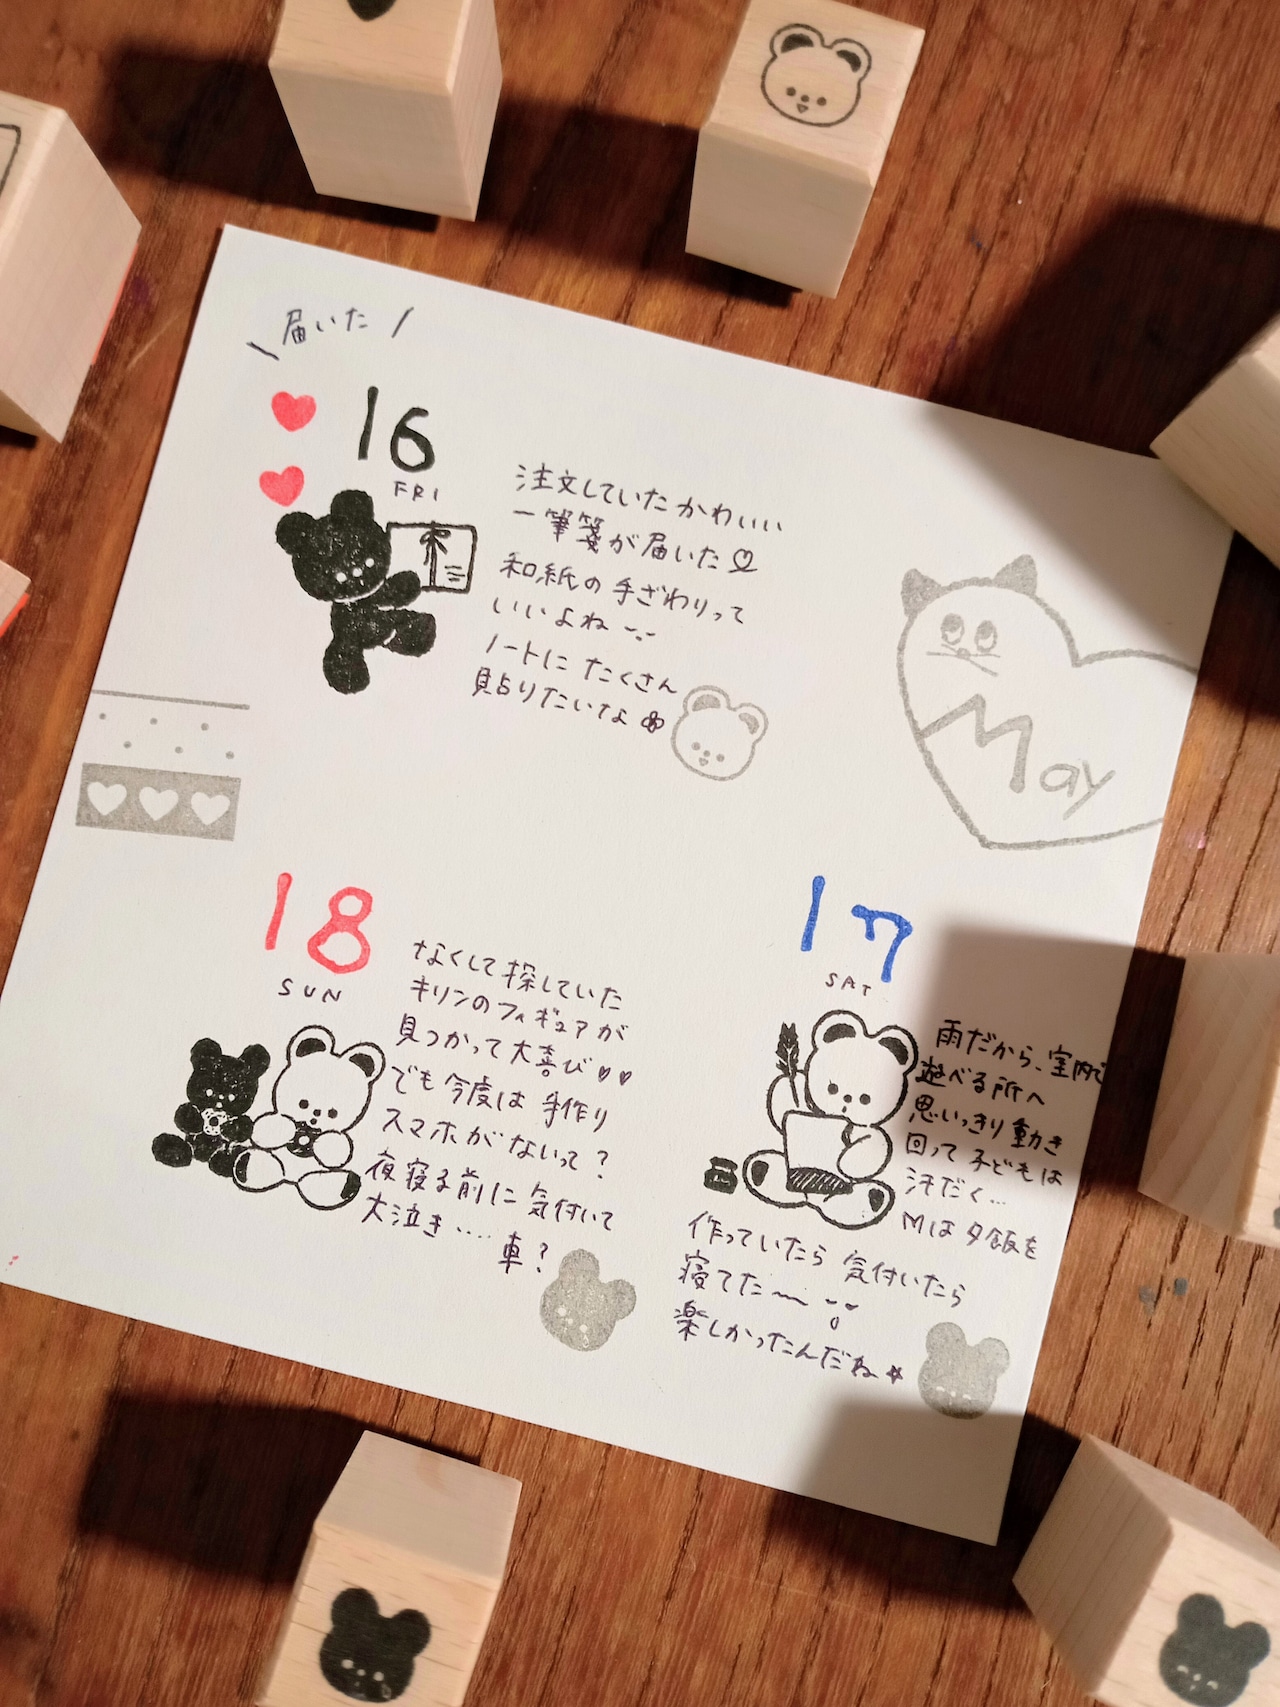 届いた
16
FRI
注文していたかわいい
一筆箋が届いた
和紙の手ざわりって
いいよね
ノートにたくさん
貼りたいな
May
17
SAT
雨だから、室内で
遊べる所へ
思いっきり動き
回って子どもは
汗だく…
Mは夕飯を
作っていたら気付いたら
寝てた〜
楽しかったんだね☆
18
SUN
なくして探していた
キリンのフィギュアが
見つかって大喜び♡♡
でも今度は手作り
スマホがないって?
夜寝る前に気付いて
大泣き….
車?